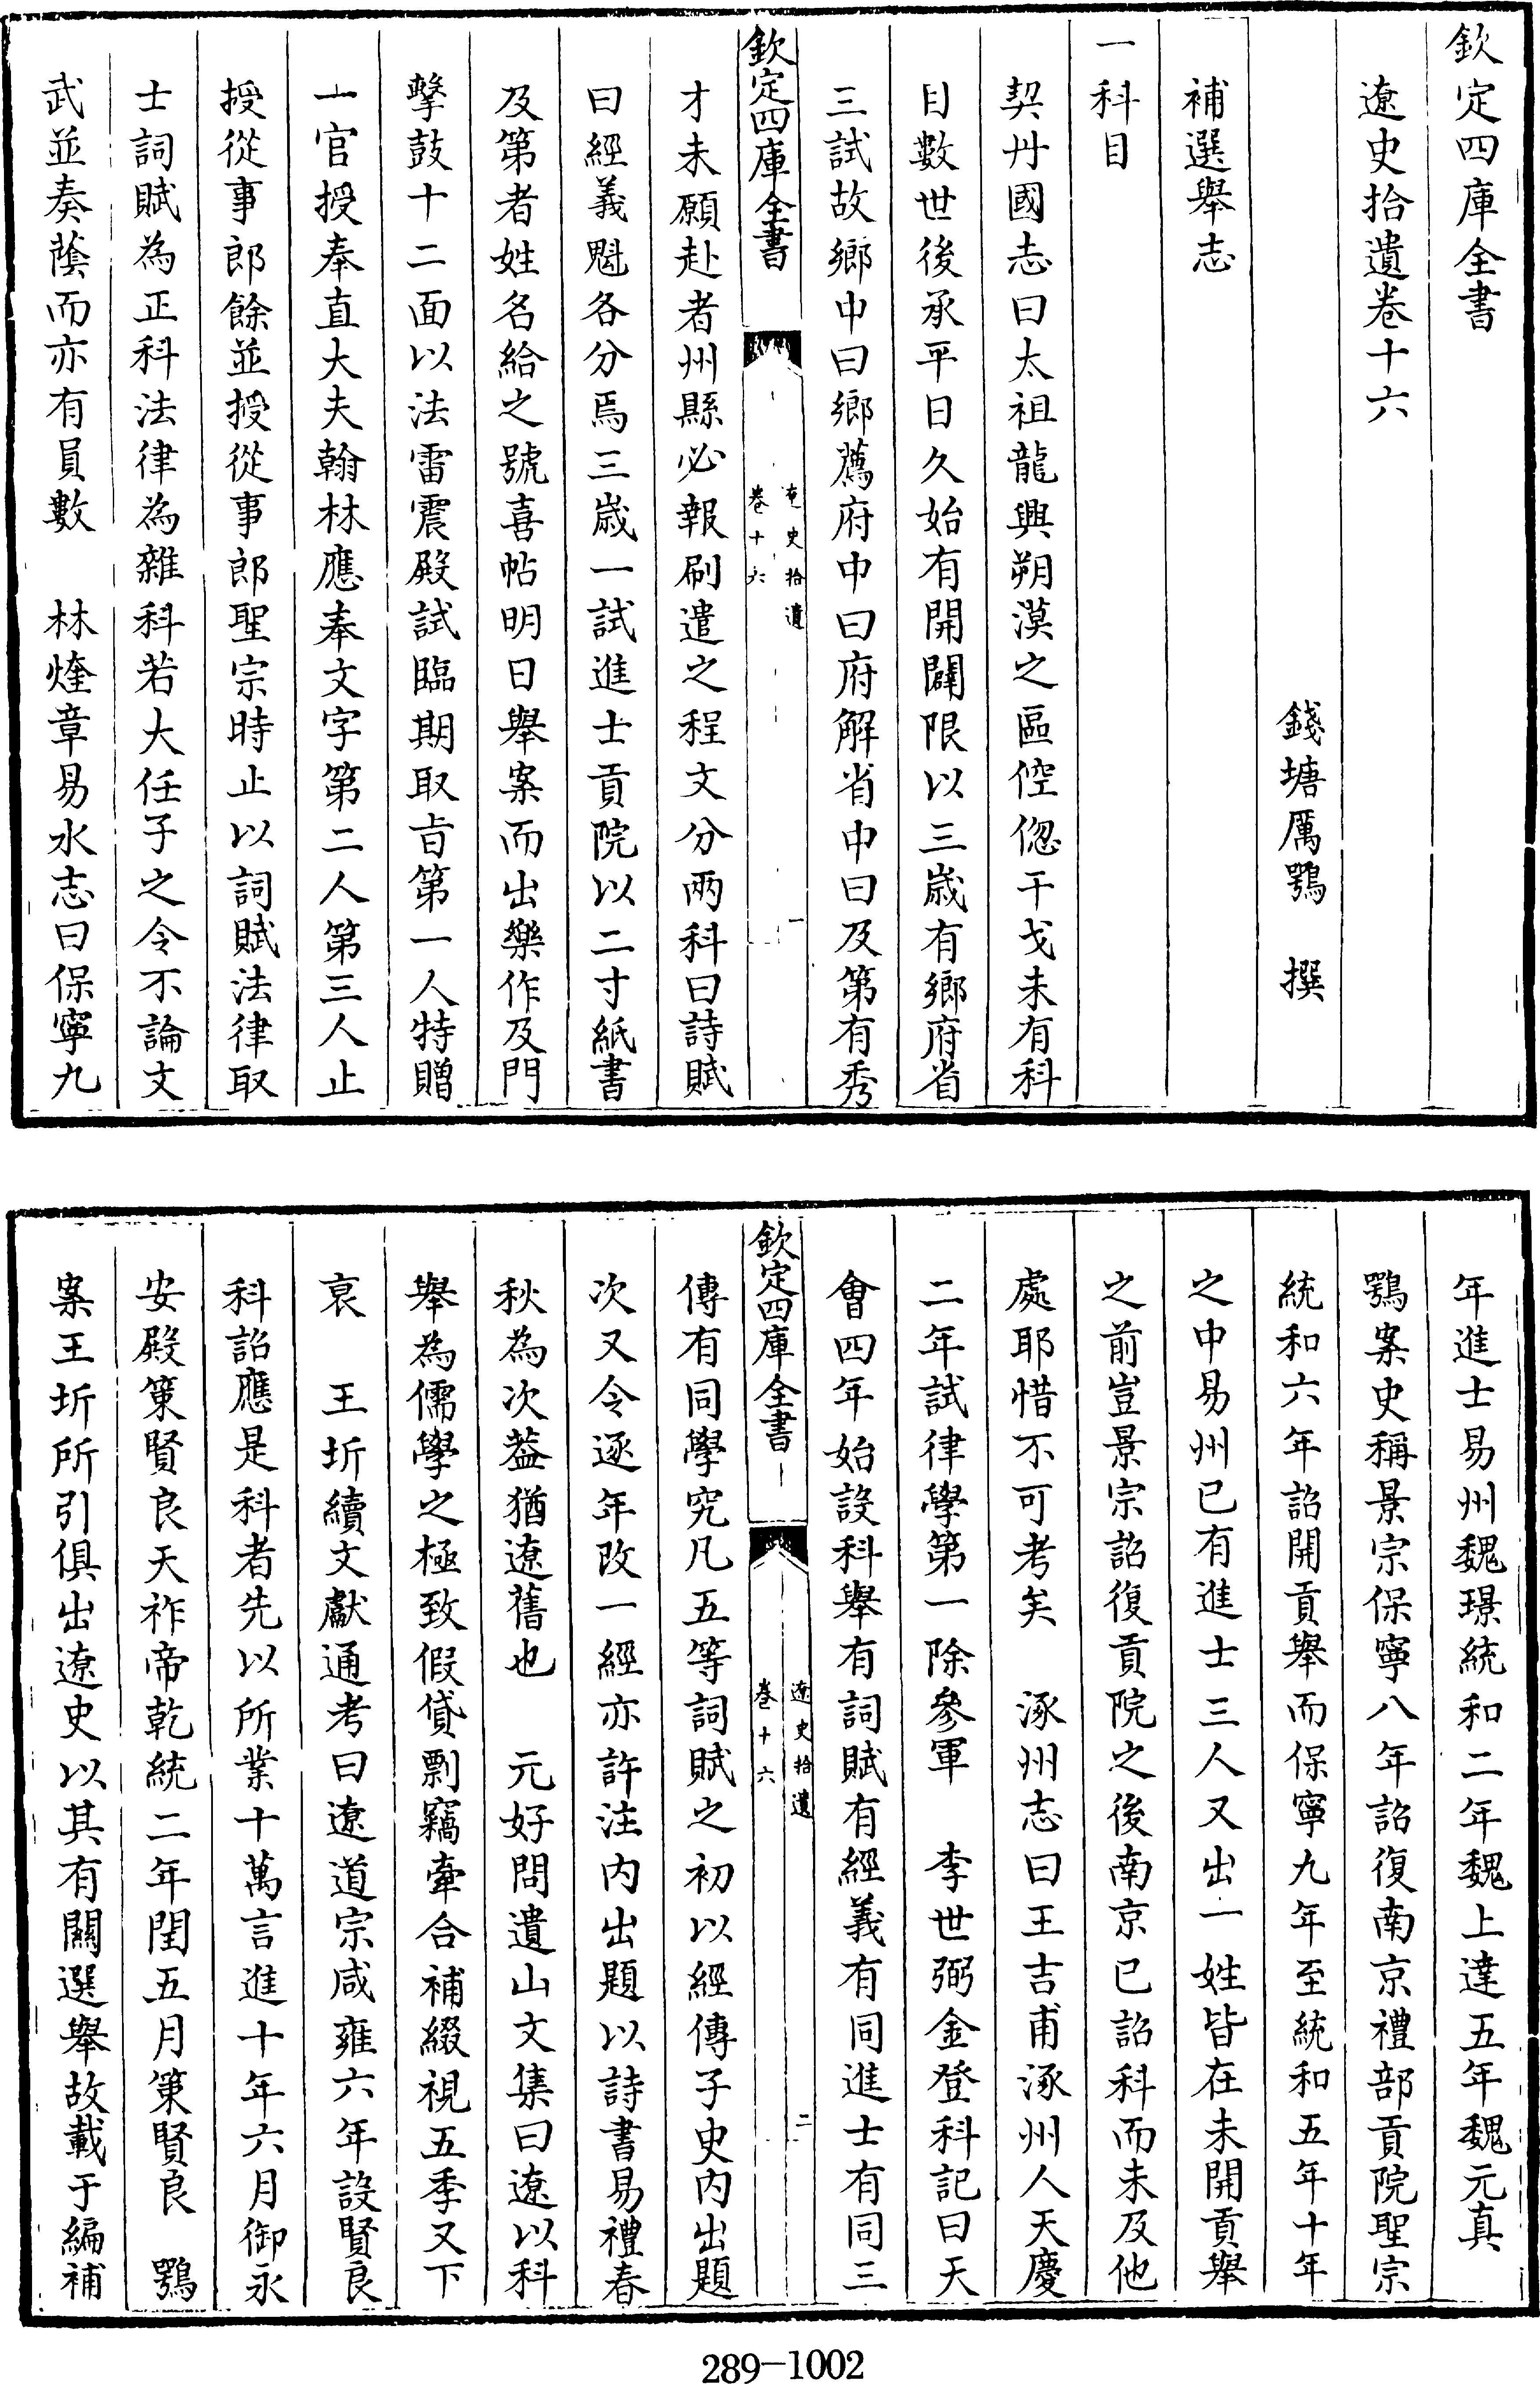 欽定四庫全書
遼史拾遺卷十六
錢塘厲鶚　撰
補選舉志
一科目
契丹國志曰太祖龍興朔漠之區倥偬干戈未有科
目數世後承平日久始有開闢限以三歲有鄉府省
三試故鄉中曰鄉薦府中曰府解省中曰及第有秀
欽定四庫全書
遼史拾遺
卷十六
一
才未願赴者州縣必報刷遣之程文分兩科曰詩賦
曰經義魁各分焉三歲一試進士貢院以二寸紙書
及第者姓名給之號喜帖明日舉案而出樂作及門
擊鼓十二面以法雷震殿試臨期取旨第一人特贈
一官授奉直大夫翰林應奉文字第二人第三人止
授從事郎餘並授從事郎聖宗時止以詞賦法律取
士詞賦為正科法律為雜科若大任子之令不論文
武並奏蔭而亦有員數　林煃章易水志曰保寧九
年進士易州魏璟統和二年魏上達五年魏元真
鶚案史稱景宗保寧八年詔復南京禮部貢院聖宗
統和六年詔開貢舉而保寧九年至統和五年十年
之中易州已有進士三人又出一姓皆在未開貢舉
之前豈景宗詔復貢院之後南京已詔科而未及他
處耶惜不可考矣　涿州志曰王吉甫涿州人天慶
二年試律學第一除參軍　李世弼金登科記曰天
會四年始設科舉有詞賦有經義有同進士有同三
欽定四庫全書
遼史拾遺
卷十六
二
傳有同學究凡五等詞賦之初以經傳子史内出題
次又令逐年改一經亦許注内出題以詩書易禮春
秋為次葢猶遼舊也　元好問遺山文集曰遼以科
舉為儒學之極致假貸剽竊牽合補綴視五季又下
衰　王圻續文獻通考曰遼道宗咸雍六年設賢良
科詔應是科者先以所業十萬言進十年六月御永
安殿策賢良天祚帝乾統二年閏五月策賢良　鶚
案王圻所引俱出遼史以其有關選舉故載于編補
289-1002